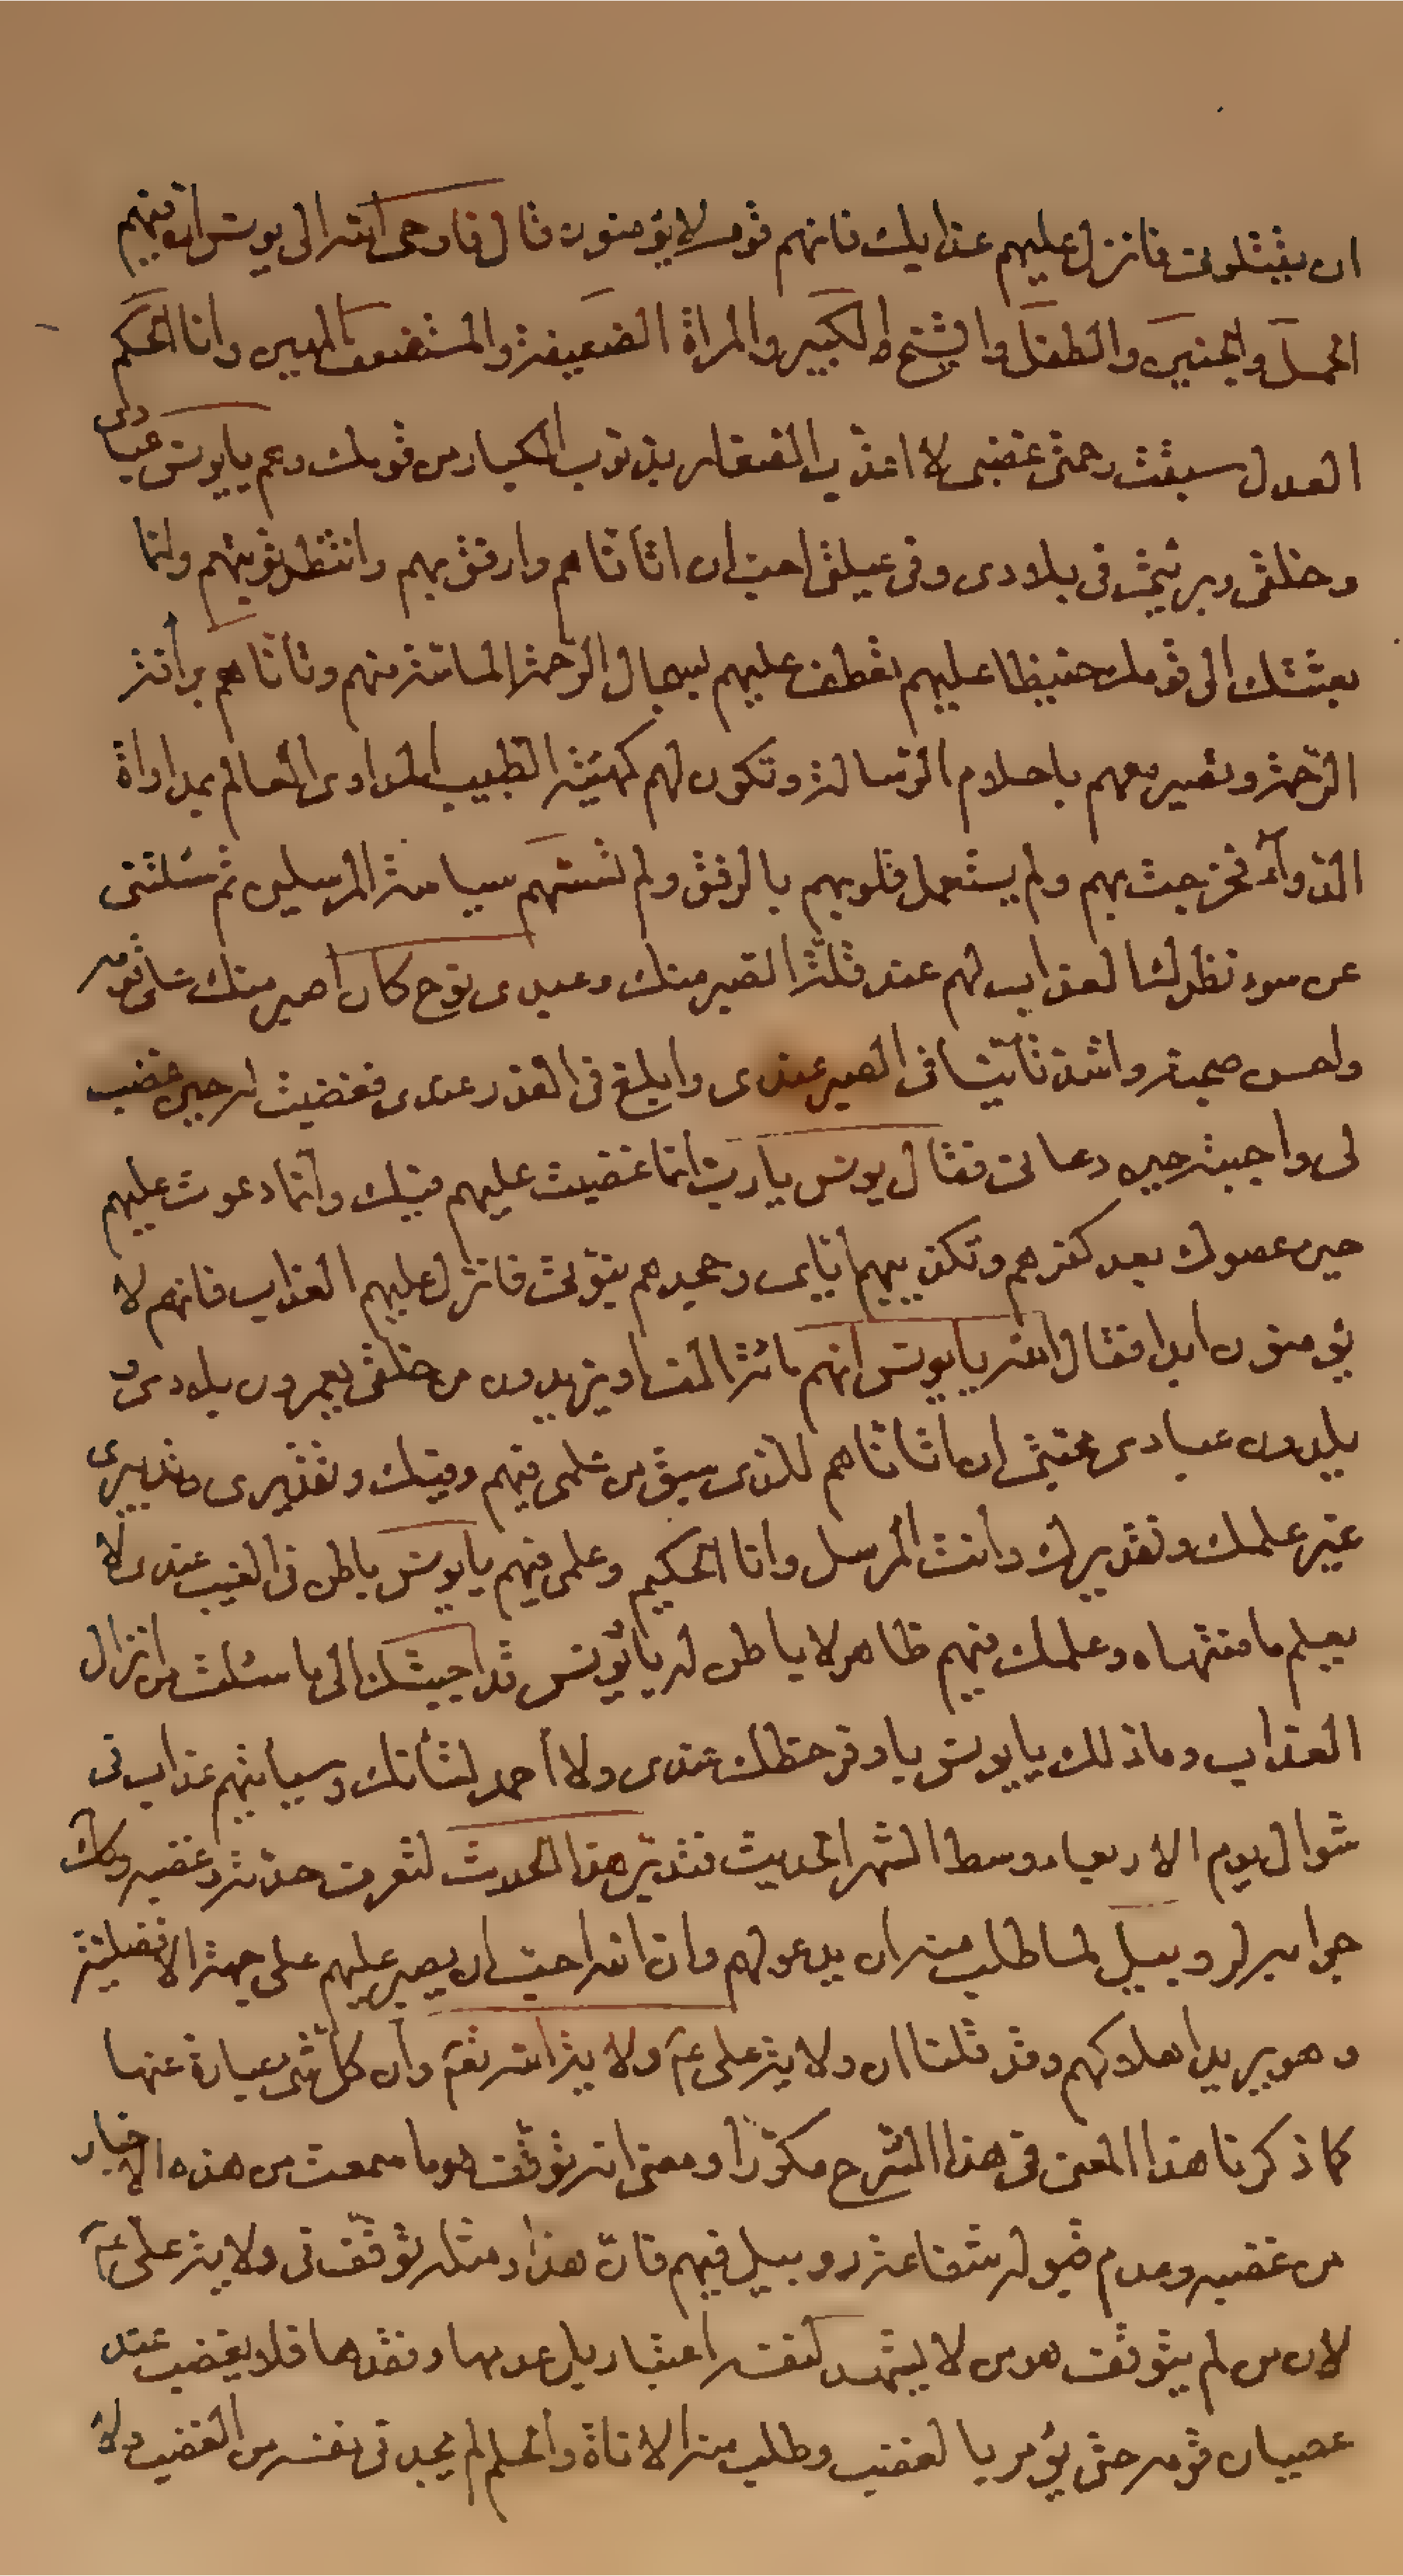 ان يقتلونى فانزل عليهم عذابك فانهم قوم لا يؤمنون قال فاوحى الله الى يونس ان فيهم
الحمل والجنين والطفل والشيخ الكبير والمراة الضعيفة والمستضعف المهين وانا الحكم
العدل سبقت رحمتى غضبى لا اعذب الصغار بذنوب الكبار من قومك وهم يا يونس عبادى
وخلقى وبريتى فى بلادى وفى عيلتى احب ان اتاناهم وارفق بهم وانتظر توبتهم وانما
بعثتك الى قومك حفيظا عليهم تعطف عليهم بسجال الرحمة الماسة منهم وتاناهم برأفة
الرحمة وتصبر معهم باحلام الرسالة وتكون لهم كهيئة الطبيب المداوى العالم بمداواة
الدواء فخرجت بهم ولم يستعمل قلوبهم بالرفق ولم تسسهم سياسة المرسلين ثم سئلتنى
عن سوء نظرك العذاب لهم عند قلة الصبر منك وعبدى نوح كان اصبر منك على قومه
واحسن صحبة واشد تأنيا فى الصبر عندى وابلغ فى العذر عندى فغضبت له حين غضب
لى واجبته حين دعانى فقال يونس يا رب انما غضبت عليهم فيك وانما دعوت عليهم
حين عصوك بعد كفرهم وتكذيبهم اياى وجحدهم بنبوتى فانزل عليهم العذاب فانهم لا
يؤمنون ابدا فقال الله يا يونس انهم مائة الف او يزيدون من خلقى يعمرون بلادى و
يلدون عبادى محبتى ان اتاناهم للذى سبق من علمى فيهم وفيك وتقديرى وتدبيرى
غير علمك وتقديرك وانت المرسل وانا الحكيم وعلمى فيهم يا يونس باطن فى الغيب عندى لا
يعلم ما منتهاه وعلمك فيهم ظاهر لا باطن له يا يونس قد اجبتك الى ما سئلت من انزال
العذاب وما ذلك يا يونس باوفر حظك عندى ولا احمد لشأنك وسيأتيهم عذاب فى
شوال يوم الاربعاء وسط الشهر الحديث فتدبر هذا الحديث لتعرف حدته وغضبه وكذلك
جوابه لروبيل لما طلب منه ان يدعو لهم وان الله احب ان يصبر عليهم على جهة الافضلية
وهو يريد اهلاكهم وقد قلنا ان ولاية على ع ولاية الله تع وان كل شئ عبارة عنها
كما ذكرنا هذا المعنى فى هذا الشرح مكررا ومعنى انه توقف هو ما سمعت من هذه الاخبار
من غضبه وعدم قبوله شفاعة روبيل فيهم فان هذا ومثله توقف فى ولاية على ع
لان من لم يتوقف هو من لا يشهد لنفسه اعتبار بل عدمها وفقدها فلا يغضب عند
عصيان قومه حتى يؤمر بالغضب وطلب منه الاناة والحلم لم يجد فى نفسه من الغضب ولا